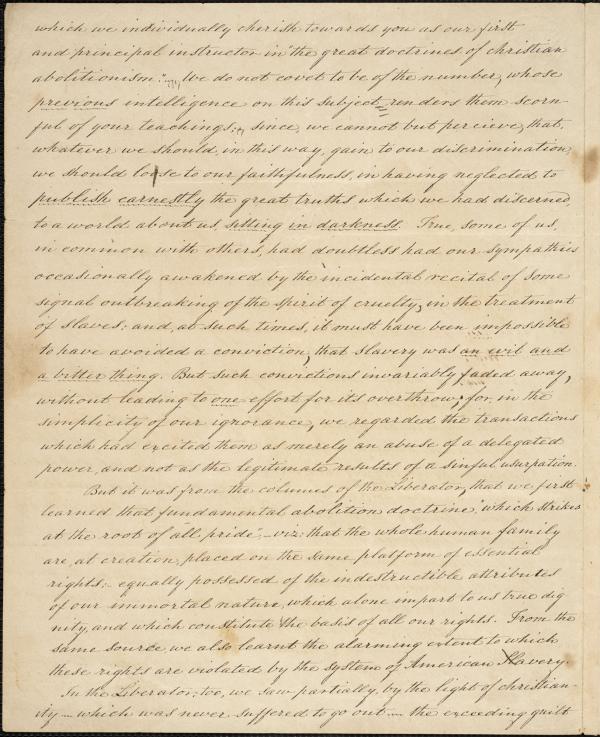 which we individually cherish towards you as our first
and principal instructor in "the great doctrines of christian
abolitionism." We do not covet to be of the number, whose
previous intelligence on this subject, renders them scorn-
ful of your teachings; since, we cannot but percieve, that,
whatever we should, in this way, gain to our discrimination,
we should lose to our faithfulness, in having neglected to
publish earnestly the great truths which we had discerned,
to a world about us, sitting in darkness. True, some of us,
in common with others, had doubtless had our sympathies
occasionally awakened by the incidental recital of some
signal outbreaking of the spirit of cruelty, in the treatment
of slaves; and at such times, it must have been impossible
to have avoided a conviction, that slavery was an evil and
a bitter thing. But such convictions invariably faded away,
without leading to one effort for its overthrow; for, in the
simplicity of our ignorance, we regarded the transactions
which had excited them as merely an abuse of a delegated
power, and not as the legitimate results of a sinful usurpation.
But it was from the columns of the Liberator, that we first
learned that fundamental abolition doctrine, "which strikes
at the root of all pride", - viz: that the whole human family
are, at creation, placed on the same platform of essential
rights; equally possessed of the indestructible attributes
of our immortal nature, which alone impart to us true dig
nity, and which constitute the basis of all our rights. From the
same source we also learnt the alarming extent to which
these rights are violated by the system of American Slavery.
In the Liberator, too, we saw partially, by the light of christian-
ity — which was never suffered to go out — the exceeding guilt